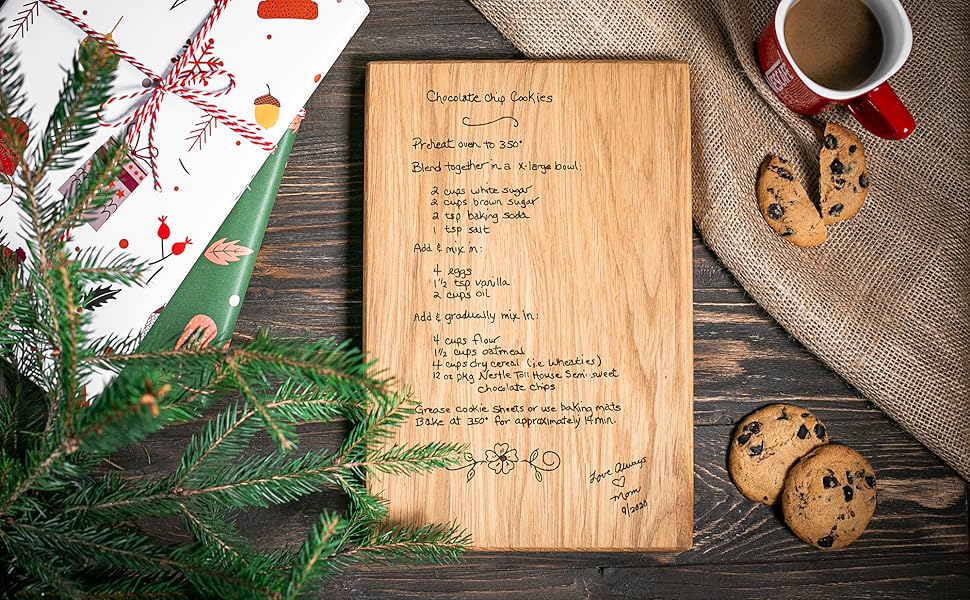 Chocolate Chip Cookies
Preheat oven to 350°
Blend together in a X-large bowl:
2 cups white sugar
2 cups brown sugar
2 tsp baking soda
1 tsp salt
Add & mix in:
4 eggs
1 1/2 tsp vanilla
2 cups oil
Add & gradually mix in:
4 cups flour
1 1/2 cups oatmeal
4 cups dry cereal (i.e. Wheaties)
12 oz pkg Nestle Toll House Semi-sweet
chocolate chips
Grease cookie sheets or use baking mats
Bake at 350° for approximately 14 min.
Love Always
♡
Mom
9/2020